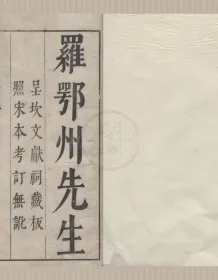 呈坎文獻祠藏板
照宋本考訂無訛
羅鄂州先生